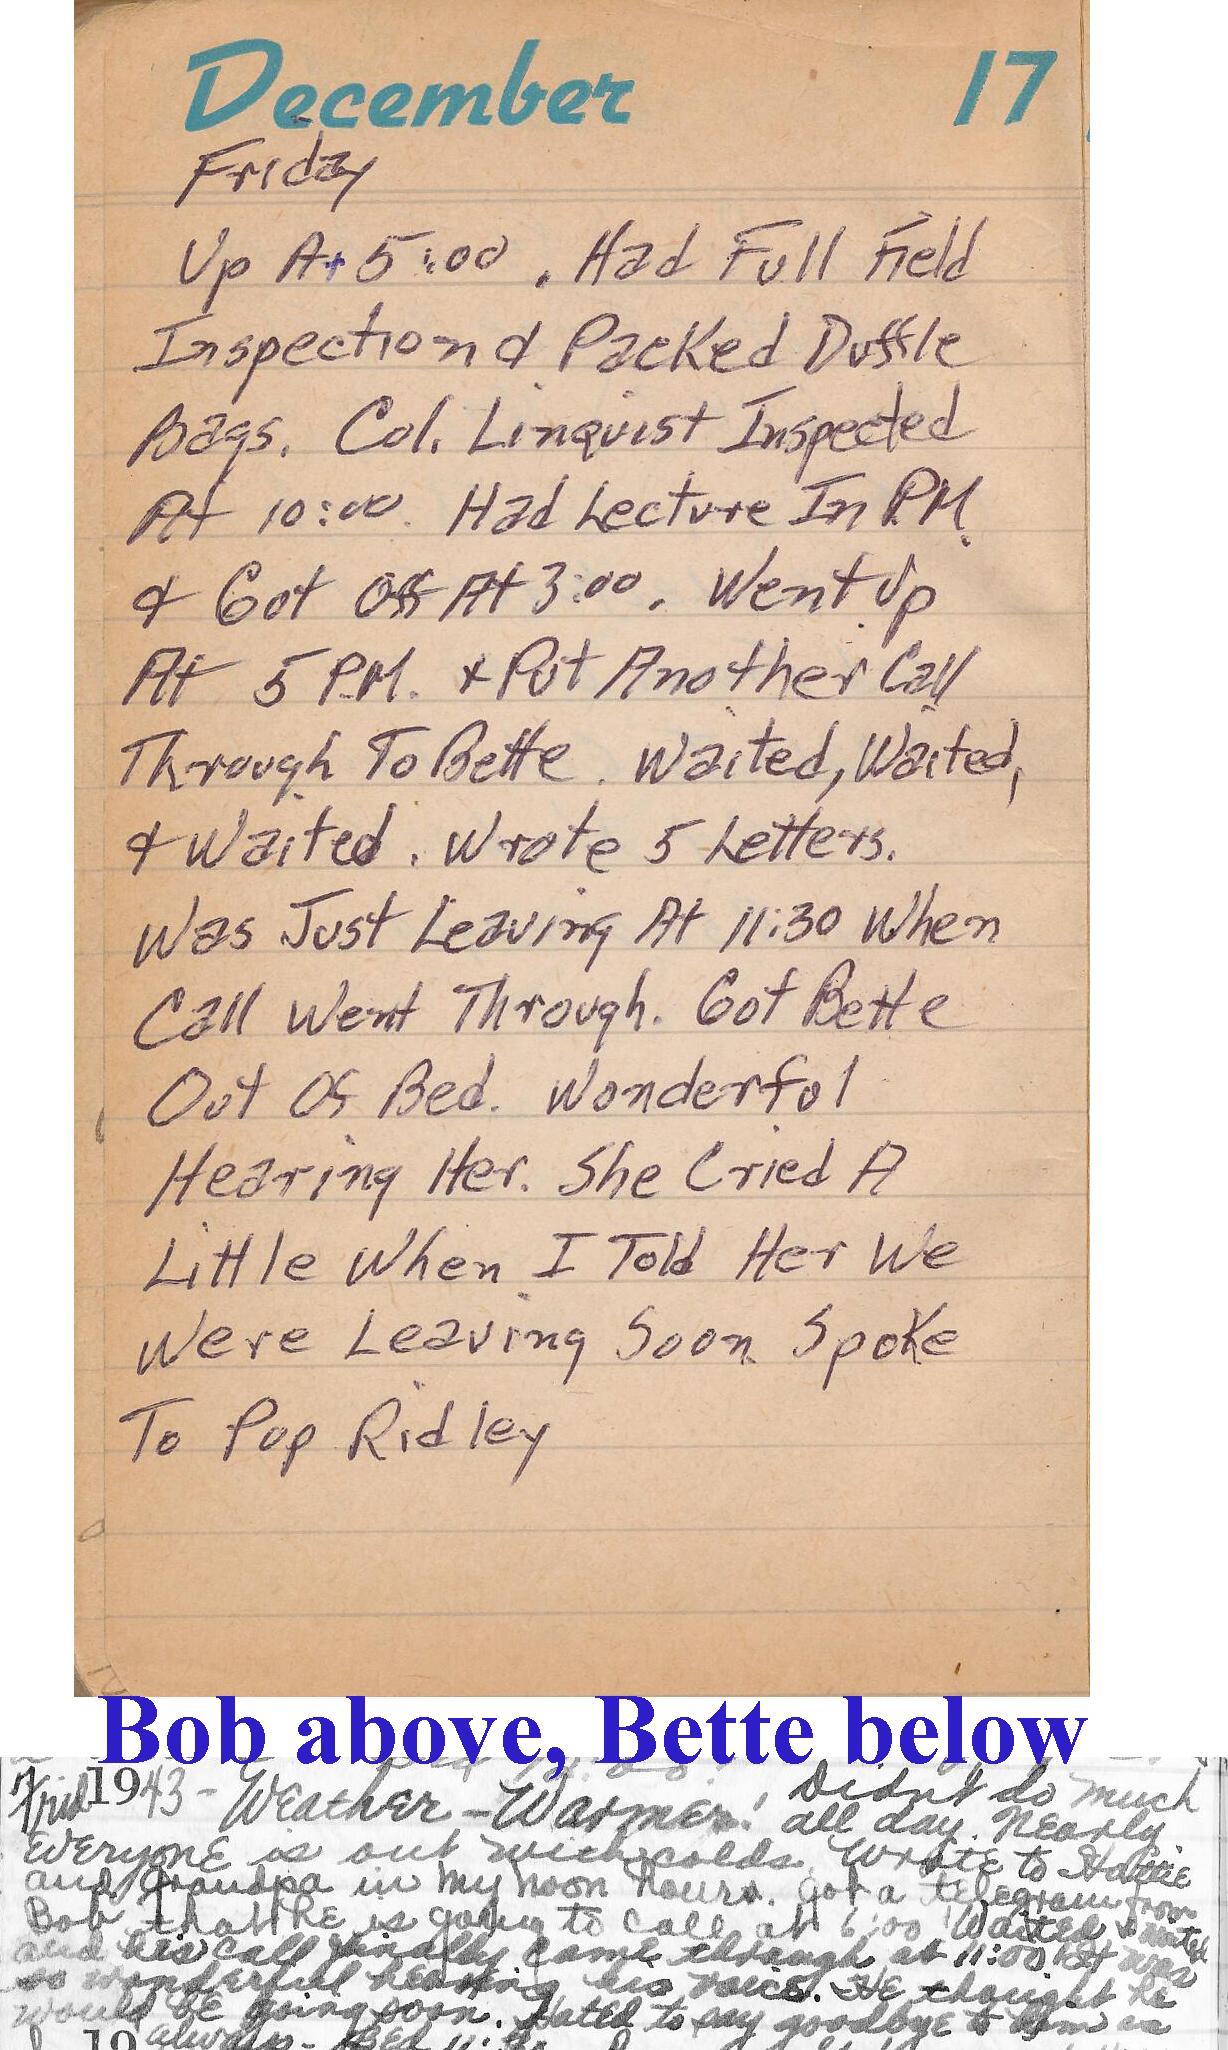 December 17
Friday
Up At 5:00. Had Full Field
Inspection & Packed Duffle
Bags. Col. Linquist Inspected
At 10:00. Had Lecture In P.M.
& Got Off At 3:00. Went Up
At 5 P.M. & Put Another Call
Through To Bette. Waited, Waited,
& Waited. Wrote 5 Letters.
Was Just Leaving At 11:30 When
Call Went Through. Got Bette
Out Of Bed. Wonderful
Hearing Her. She Cried A
Little When I Told Her We
Were Leaving Soon Spoke
To Pop Ridley
Bob above, Bette below
Frid 1943 - Weather - Warmer! Didn't do much
all day. Nearly
everyone is out with colds. Wrote to Hattie
and Grandpa in my noon hours. got a telegram from
Bob that he is going to call at 6:00! Waited & waited
and his call finally came through at 11:00. It was
so wonderful hearing his voice. He thought he
would be going soon. Hated to say goodbye to him as
19 always - Bed 11:30